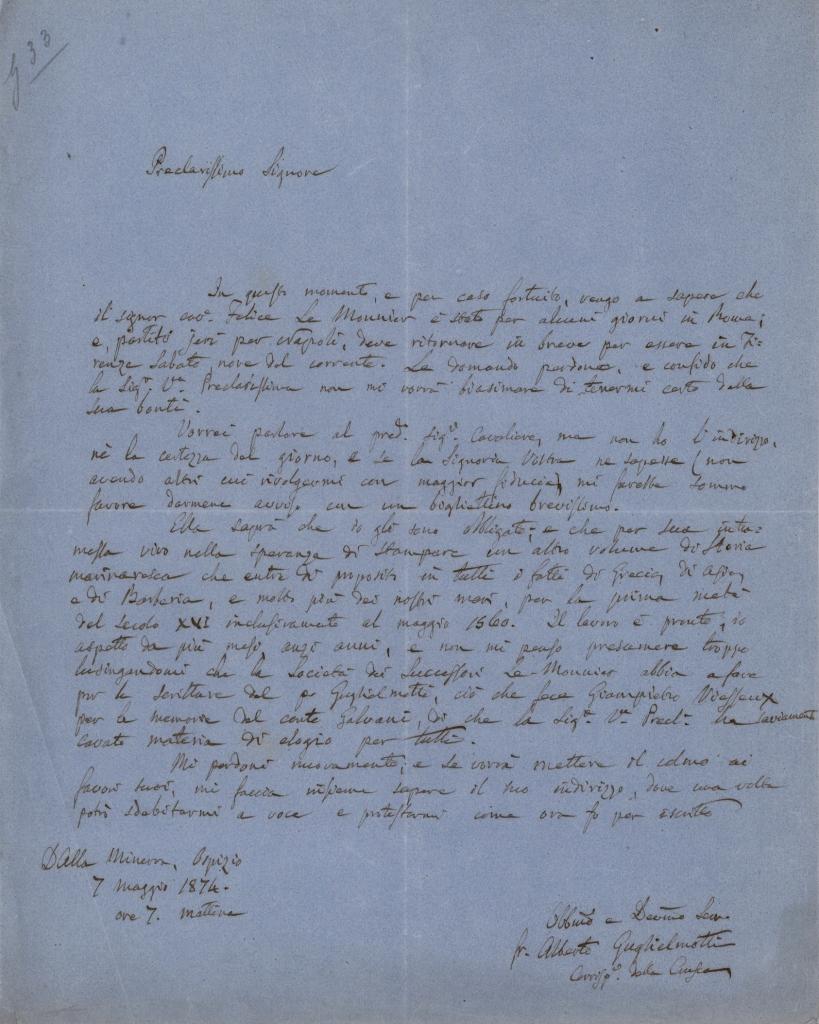 G 33
Preclarissimo Signore
In questo momento, e per caso fortuito, vengo a sapere che
il signor cav. Felice Le Monnier è stato per alcuni giorni in Roma;
e, partito jeri per Napoli, deve ritornare in breve per essere in Fi-
renze Sabato, nove del corrente. Le domando perdono, e confido che
la Sig.ª V.ª Preclarissima non mi vorrà biasimare di tenermi certo della
sua bontà.
Vorrei parlare al pred.º Sig.º Cavaliere, ma non ho l'indirizzo,
nè la certezza del giorno, e se la Signoria Vostra ne sapesse (non
avendo altri cui rivolgermi con maggior fiducia) mi farebbe sommo
favore darmene avviso con un bigliettino brevissimo.
Ella saprà che io gli sono obbligato; e che per sua intro-
messa vivo nella speranza di stampare un altro volume di Storia
marinaresca che entra di proposito in tutti i fatti di Grecia, di Asia,
e di Barberia, e molto più dei nostri mari, per la prima metà
del secolo XVI inclusivamente al maggio 1560. Il lavoro è pronto, io
aspetto da più mesi, anzi anni, e non mi penso presumere troppo
lusingandomi che la Società dei Successori Le Monnier abbia a fare
per le scritture del p. Guglielmotti, ciò che fece Giampietro Vieusseux
per le memorie del conte Galvani, di che la Sig.ª V.ª Precl.ª ha saviamente
cavato materia di elogio per tutti.
Mi perdoni nuovamente; e se vorrà mettere il colmo ai
favori suoi, mi faccia insieme sapere il suo indirizzo, dove una volta
potrò sdebitarmi a voce e protestarmi come ora fo per escritto
Dalla Minerva, Ospizio
7 Maggio 1874.
ore 7. mattina
Obbmo e Devmo Serv.
fr. Alberto Guglielmotti
Corrisp.º della Crusca